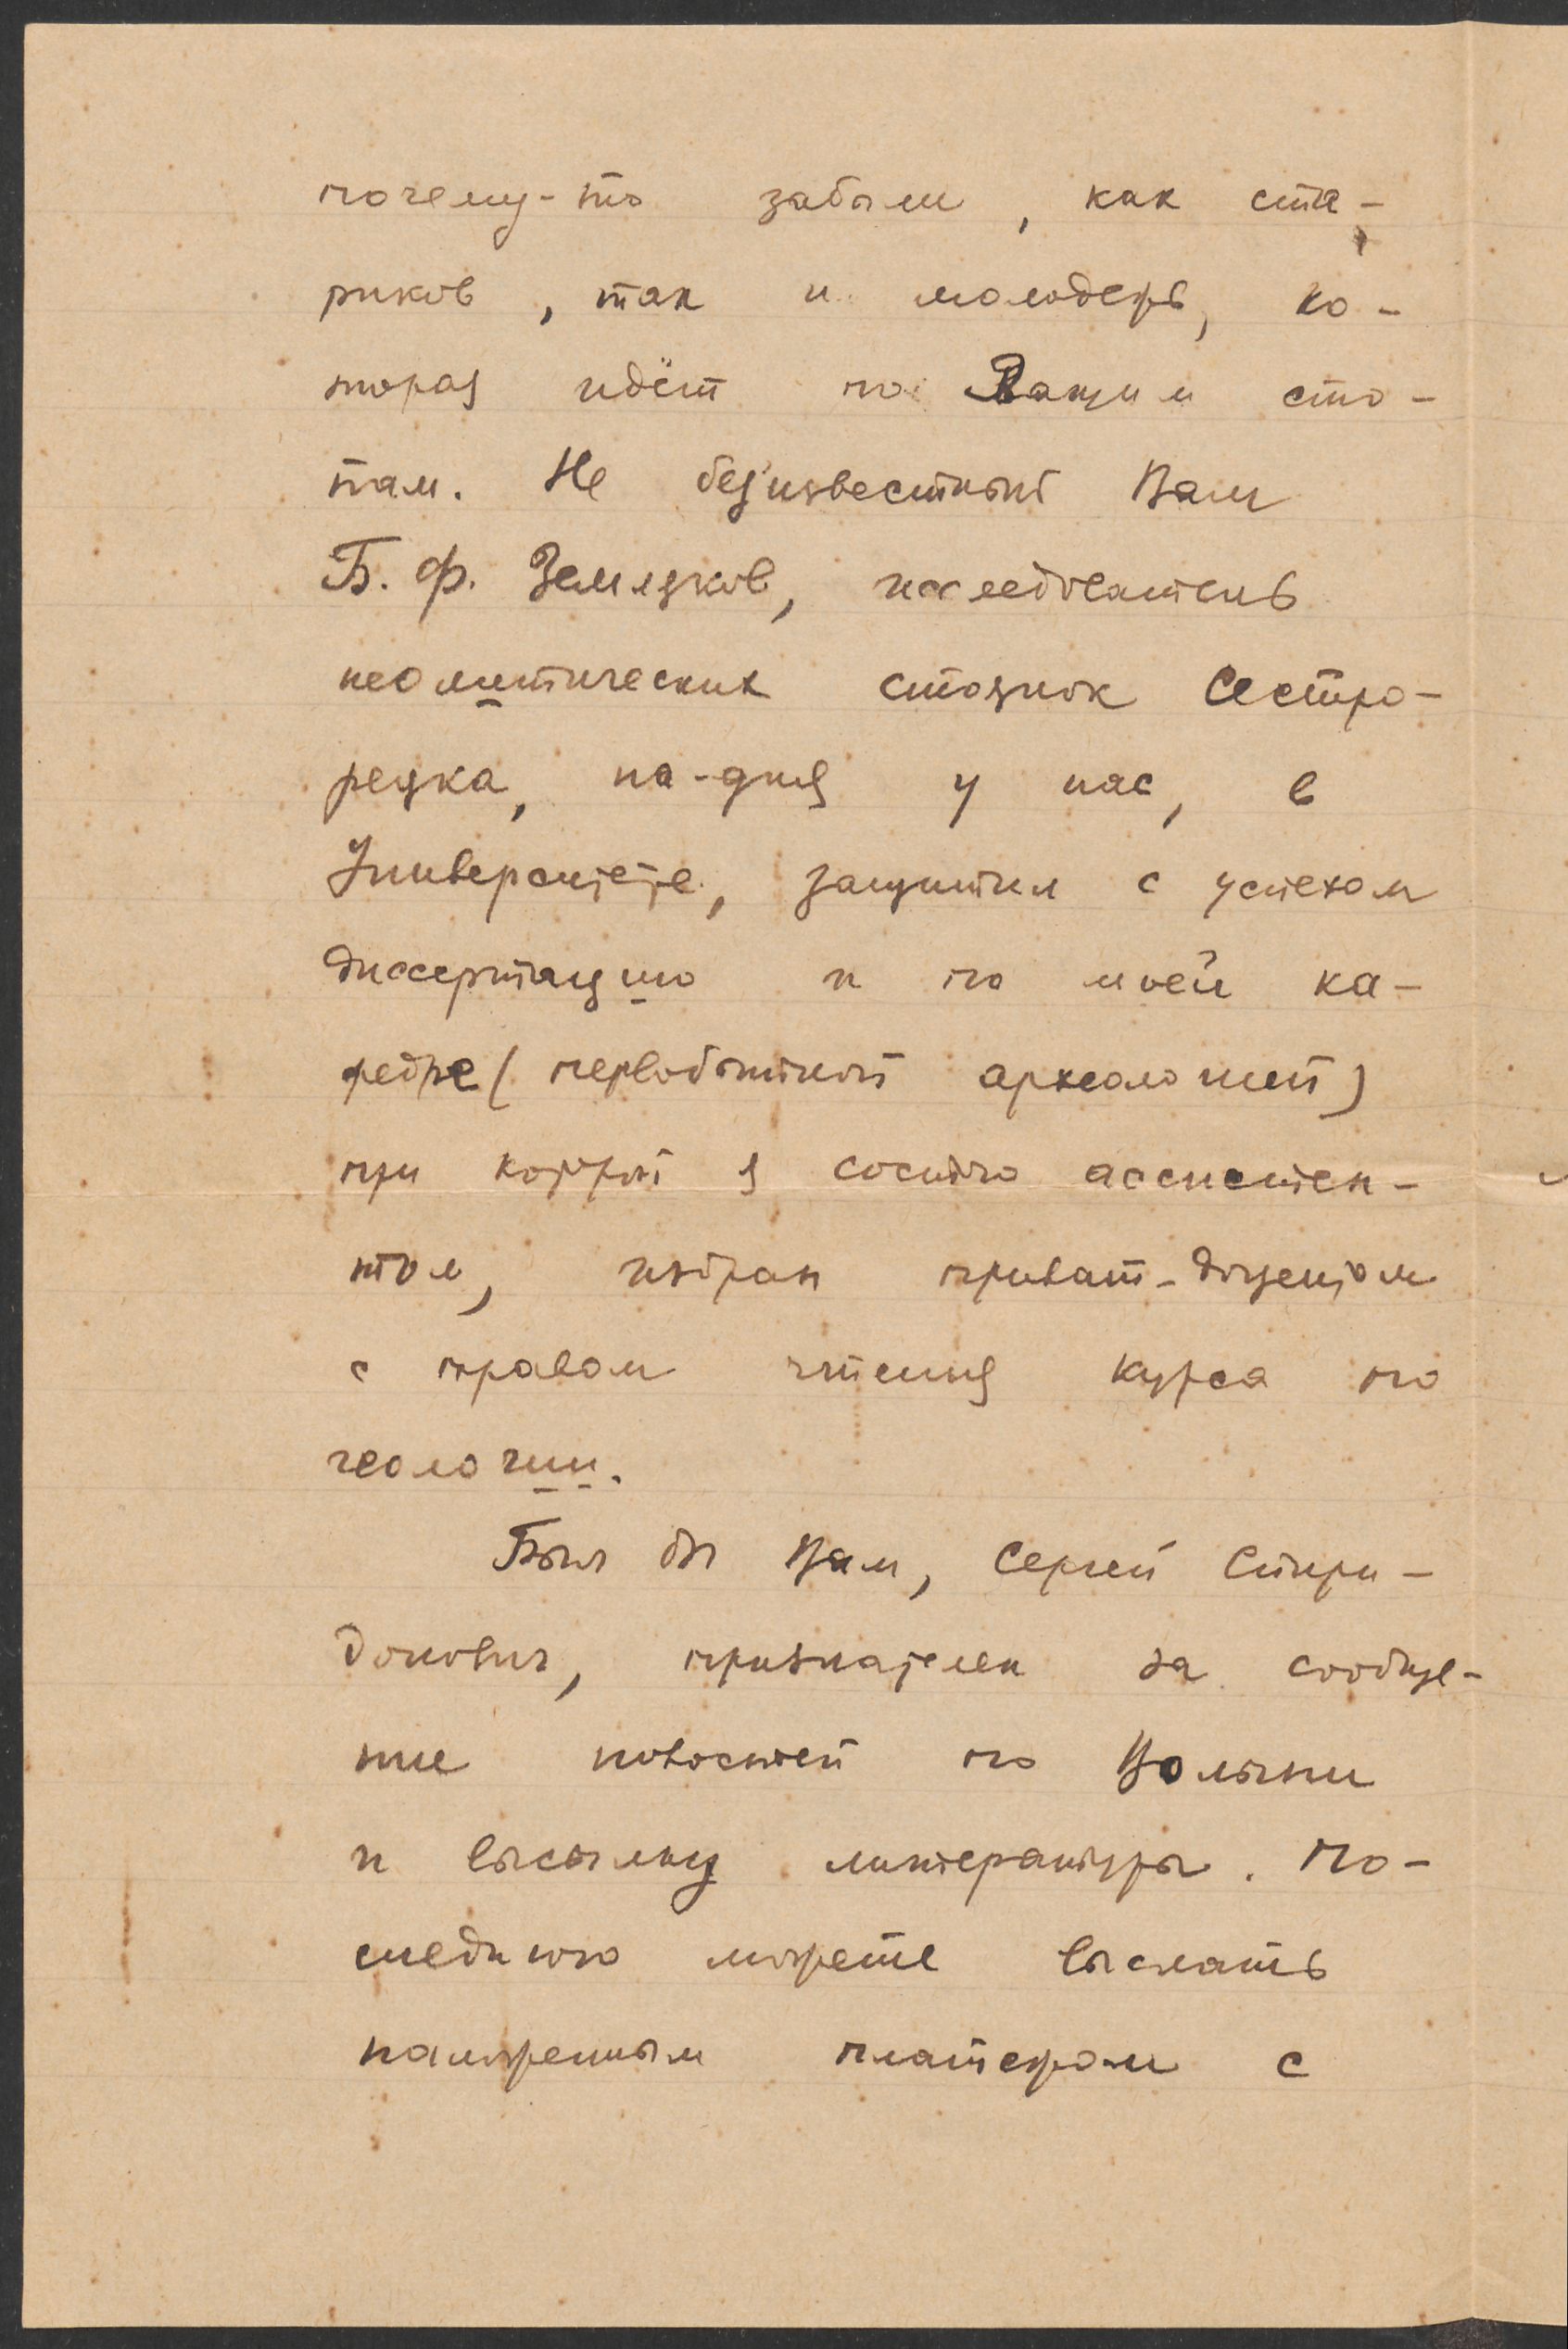 почему-то забыли, как ста-
риков, так и молодежь, ко-
торая идёт по Вашим сто-
пам. Не безызвестный Вам
Б. Ф. Земляков, исследователь
неолитических стоянок Сестро-
рецка, на-днях у нас, в
Университете, защитил с успехом
диссертацию и по моей ка-
федре (первобытной археологией)
при которой я состою ассистен-
том, избран приват-доцентом
с правом чтения курса по
геологии.
Был бы Вам, Сергей Спири-
донович, признателен за сообще-
ние новостей по Волыни
и высылку литературы. По-
следнюю можете выслать
наложенным платежом с